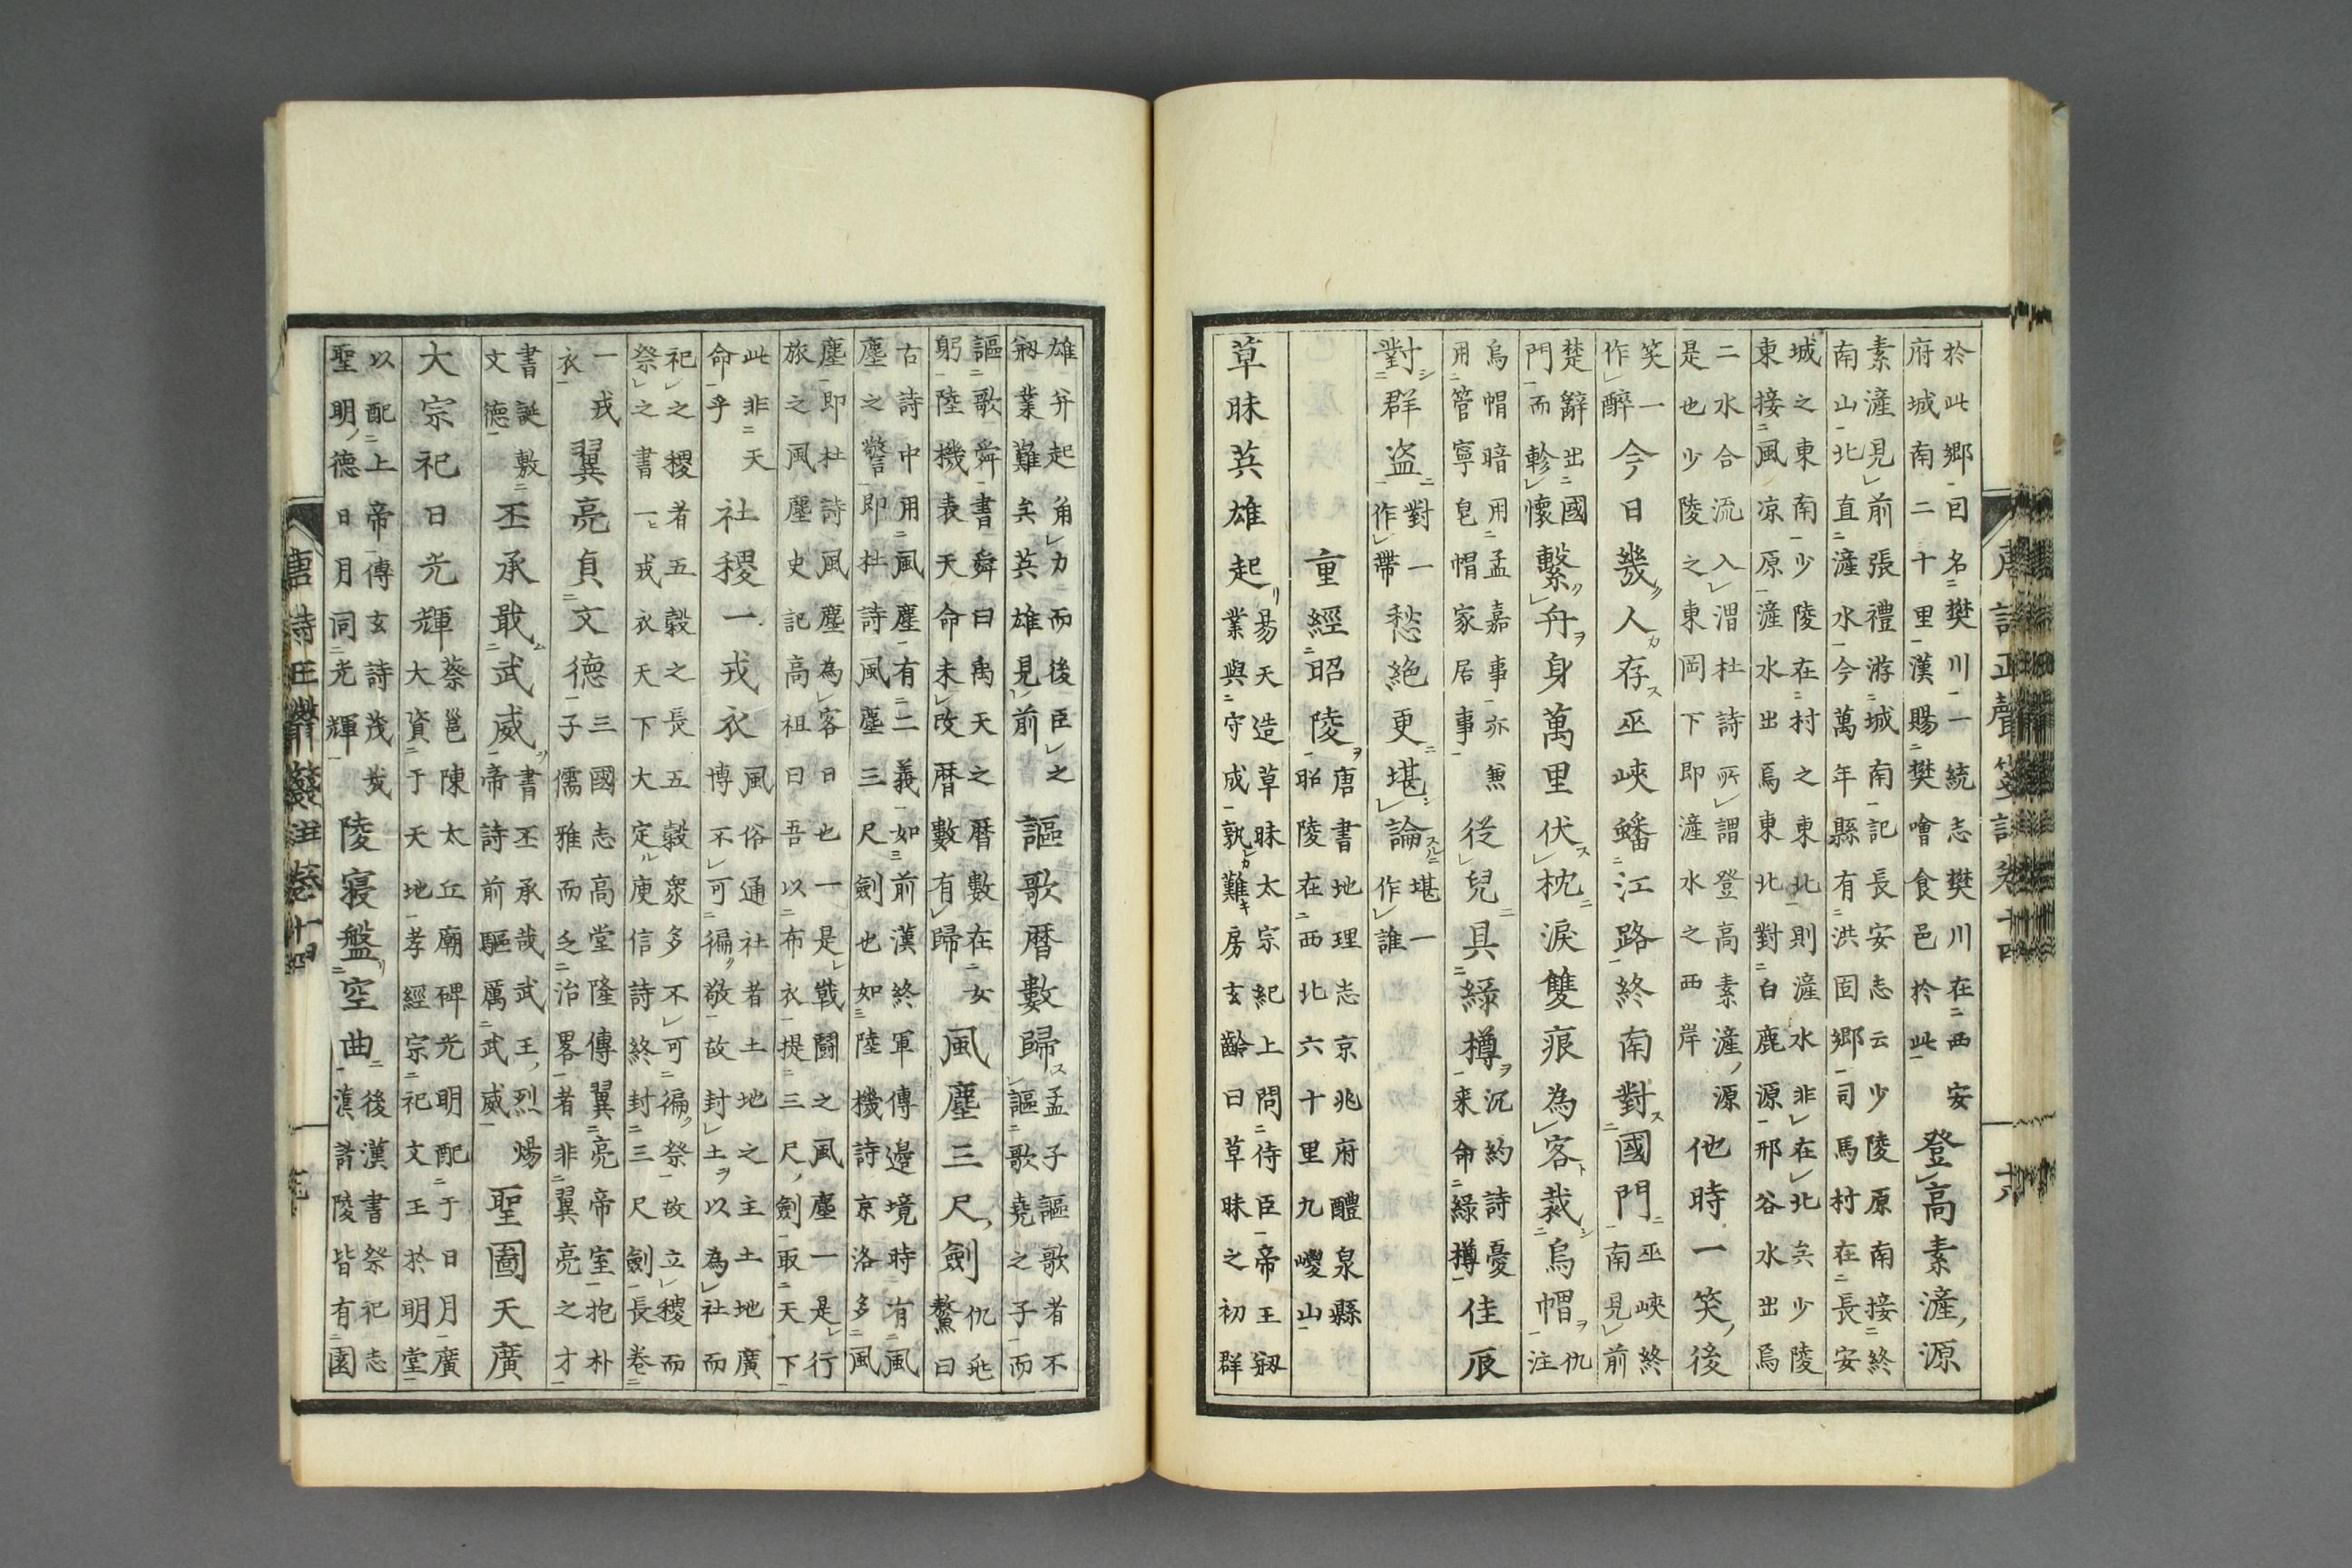 於此鄉因名樊川一統志樊川在西安
府城南二十里漢賜樊噲食邑於此
登高素滻源
素滻見前張禮游城南記長安志云少陵原南接終
南山北直滻水今萬年縣有洪固鄉司馬村在長安
城之東南少陵在村之東北則滻水非在北矣少陵
東接風凉原滻水出焉東北對白鹿源邢谷水出焉
二水合流入渭杜詩所謂登高素滻源
是也少陵之東岡下即滻水之西岸
他時一笑後
笑一
作醉
今日幾人存巫峽蟠江路終南對國門
巫峽終
南見前
楚辭出國
門而軫懷
繫舟身萬里伏枕淚雙痕為客裁烏帽
仇
注
烏帽暗用孟嘉事亦無
用管寧皂帽家居事
從兒具綠樽
沉約詩憂
来命綠樽
佳辰
對群盗
對一
作帶
愁絕更堪論
堪一
作誰
重經昭陵
唐書地理志京兆府醴泉縣
昭陵在西北六十里九嵕山
草昧英雄起
易天造草昧太宗紀上問侍臣帝王剏
業與守成孰難房玄齡曰草昧之初群
雄并起角力而後臣之
剏業難矣英雄見前
謳歌曆數歸
孟子謳歌者不
謳歌堯之子而
謳歌舜書舜曰禹天之曆數在女
躬陸機表天命未改曆數有歸
風塵三尺劍
仇兆
鰲曰
古詩中用風塵有二義如前漢終軍傳邊境時有風
塵之警即杜詩風塵三尺劍也如陸機詩京洛多風
塵即杜詩風塵為客日也一是戰鬪之風塵一是行
旅之風塵史記高祖曰吾以布衣提三尺劍取天下
此非天
命乎
社稷一戎衣
風俗通社者土地之主土地廣
博不可徧敬故封土以為社而
祀之稷者五穀之長五穀衆多不可徧祭故立稷而
祭之書一戎衣天下大定庾信詩終封三尺劍長卷
一戎
衣
翼亮貞文德
三國志高堂隆傳翼亮帝室抱朴
子儒雅而乏治畧者非翼亮之才
書誕敷
文德
丕承戢武威
書丕承哉武王烈煬
帝詩前驅厲武威
聖圖天廣
大宗祀日光輝
蔡邕陳太丘廟碑光明配于日月廣
大資于天地孝經宗祀文王於明堂
以配上帝傳玄詩茂哉
聖明德日月同光輝
陵寝盤空曲
後漢書祭祀志
漢諸陵皆有園
唐詩正聲箋註卷十四
十八
唐詩正聲箋註卷十四